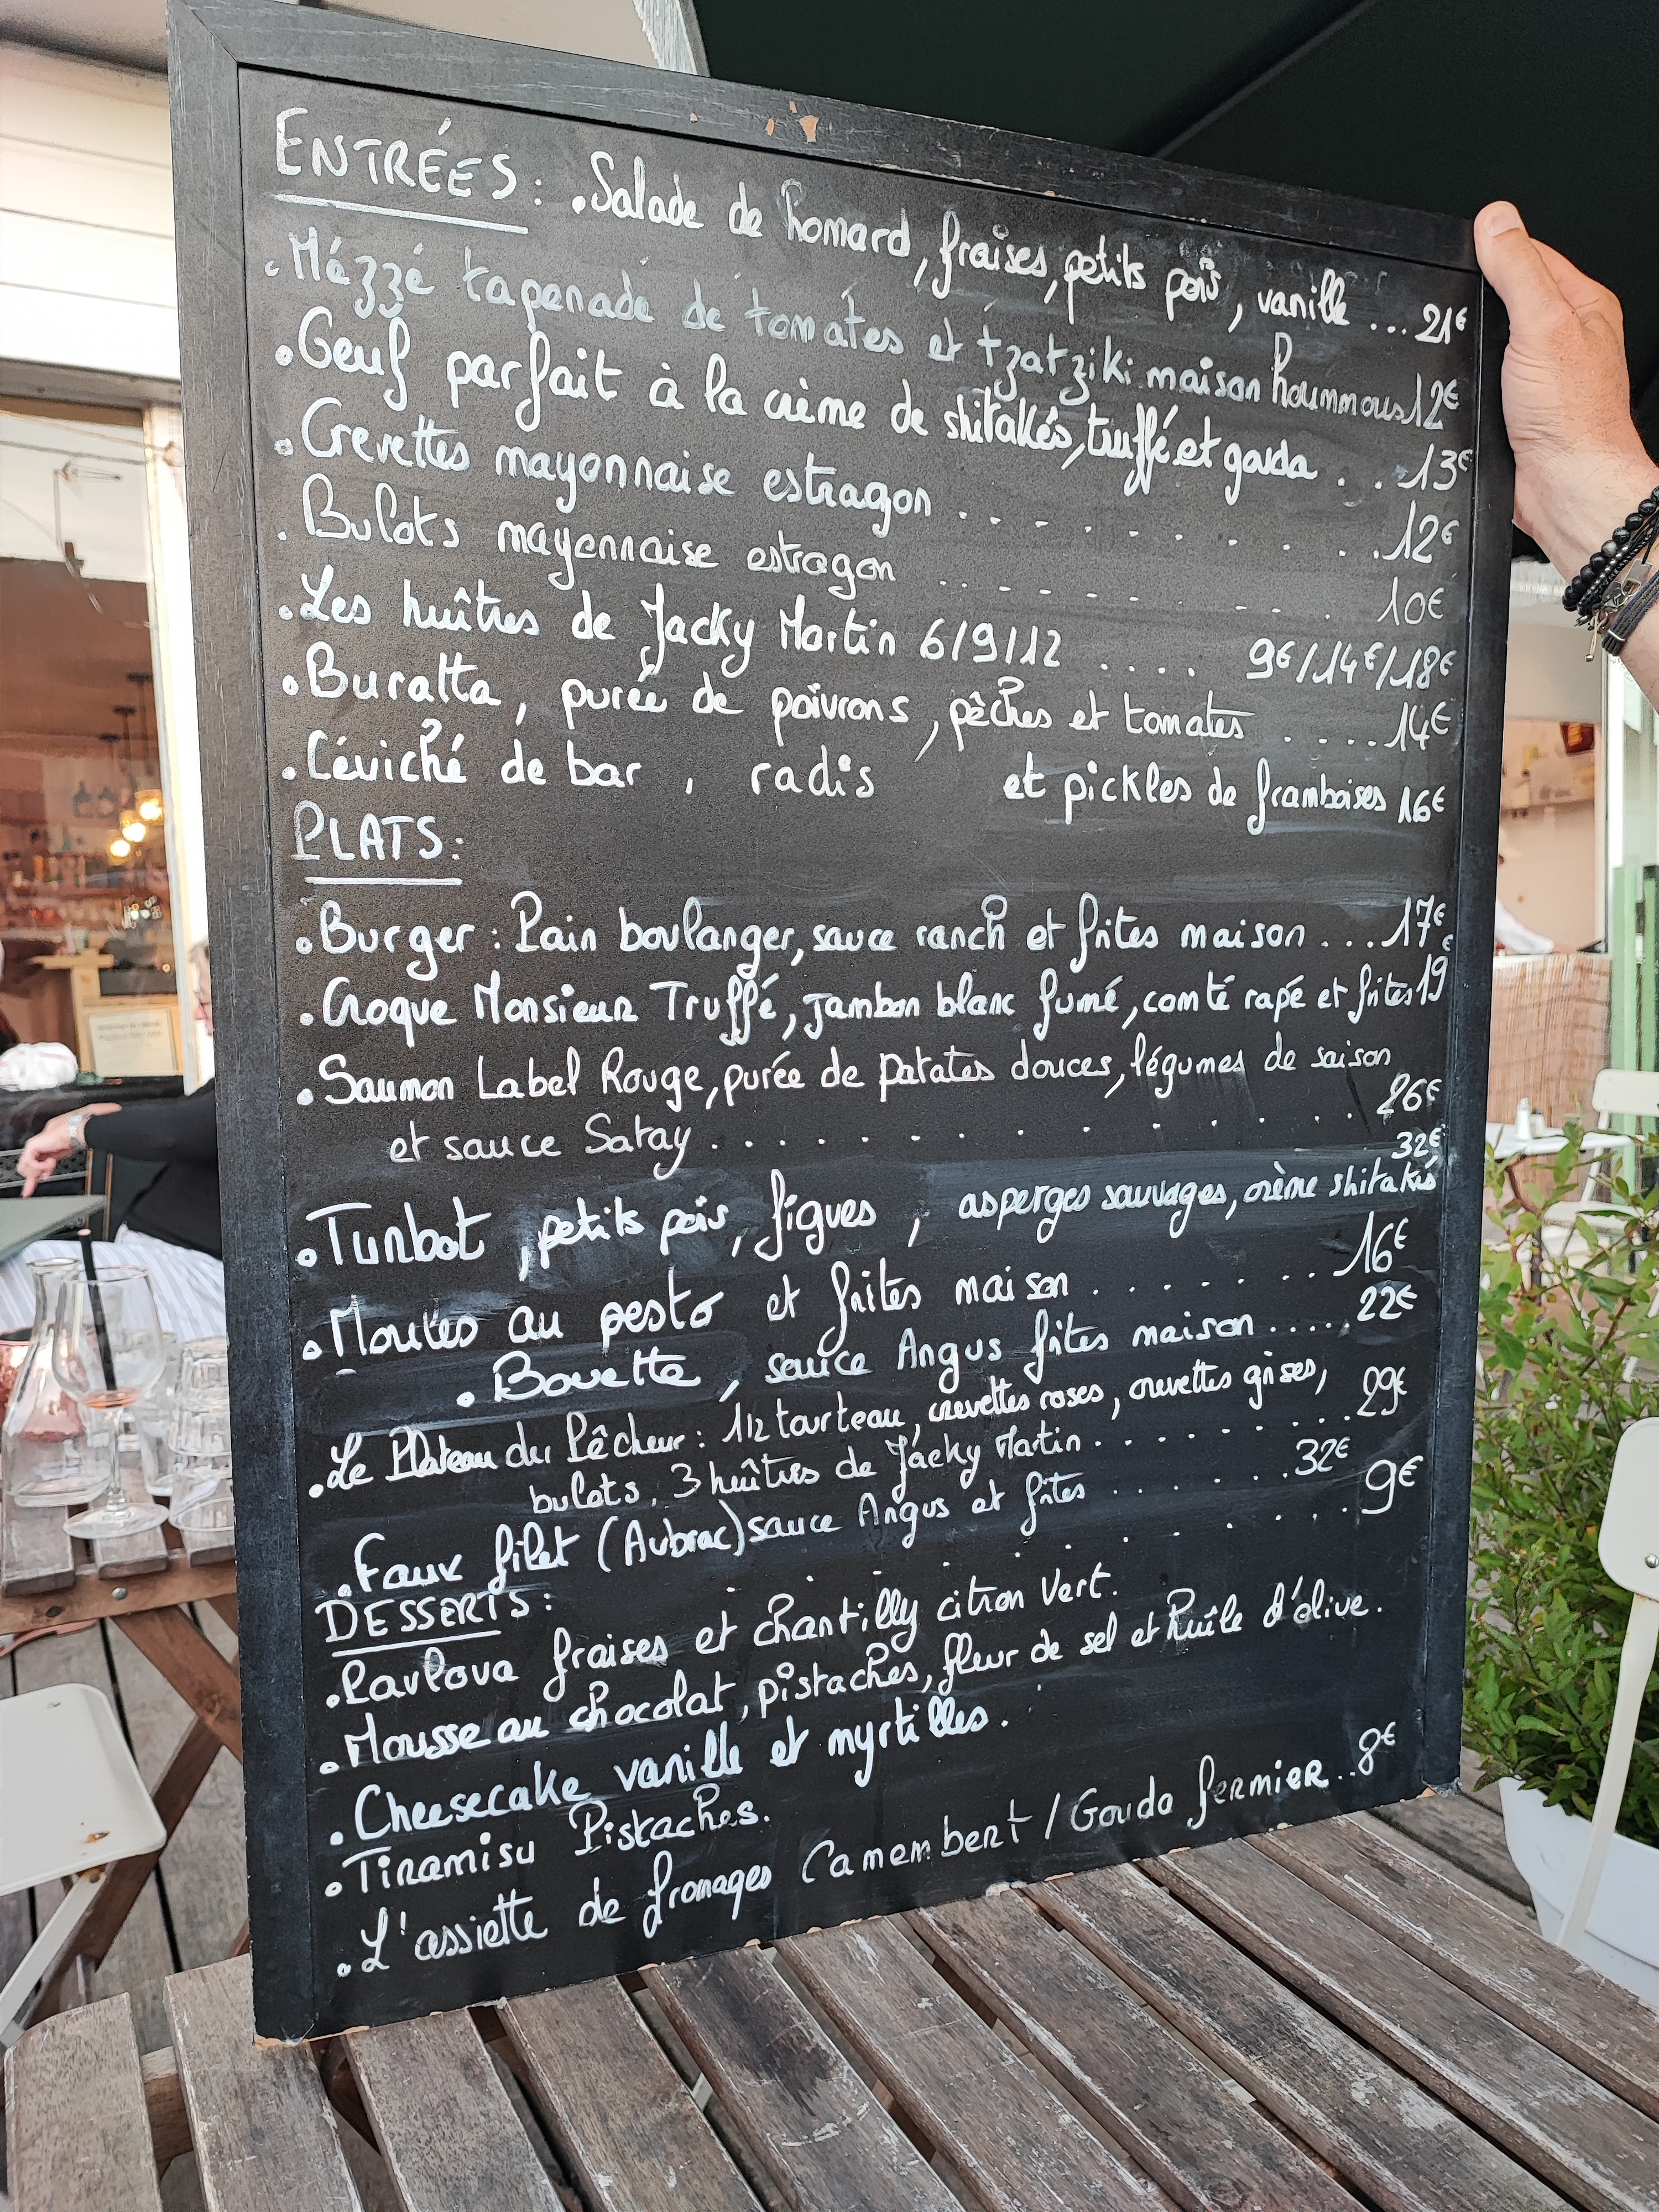 ENTRÉES : . Salade de homard, fraises, petits pois, vanille ... 21€
. Mézzé tapenade de tomates et tzatziki maison hoummous 12€
. Oeuf parfait à la crème de shitakés, truffé et gouda . . 13€
. Crevettes mayonnaise estragon . . . . . . . . . 12€
. Bulots mayonnaise estragon . . . . . . . . . 10€
. Les huîtres de Jacky Martin 6/9/12 .... 9€/14€/18€
. Buratta, purée de poivrons, pêches et tomates .... 14€
. Céviché de bar, radis et pickles de framboises 16€
PLATS :
. Burger : Pain boulanger, sauce ranch et frites maison ... 17€
. Croque Monsieur Truffé, jambon blanc fumé, comté rapé et frites 19€
. Saumon Label Rouge, purée de patates douces, légumes de saison
et sauce Satay . . . . . . . . . . . . 26€
32€
. Turbot, petits pois, figues, asperges sauvages, crème shitakés
. Moules au pesto et frites maison . . . . . . . 16€
. Bavette, sauce Angus frites maison ..... 22€
. Le Plateau du Pêcheur : 1/2 tourteau, crevettes roses, crevettes grises,
bulots, 3 huîtres de Jacky Matin . . . . . . . 29€
. Faux filet (Aubrac) sauce Angus et frites . . . . . . 32€
DESSERTS : . . . . . . . . . 9€
. Pavlova fraises et chantilly citron vert.
. Mousse au chocolat, pistaches, fleur de sel et huile d'olive.
. Cheesecake vanille et myrtilles.
. Tiramisu Pistaches.
. L'assiette de fromages Camembert / Gouda fermier .. 8€